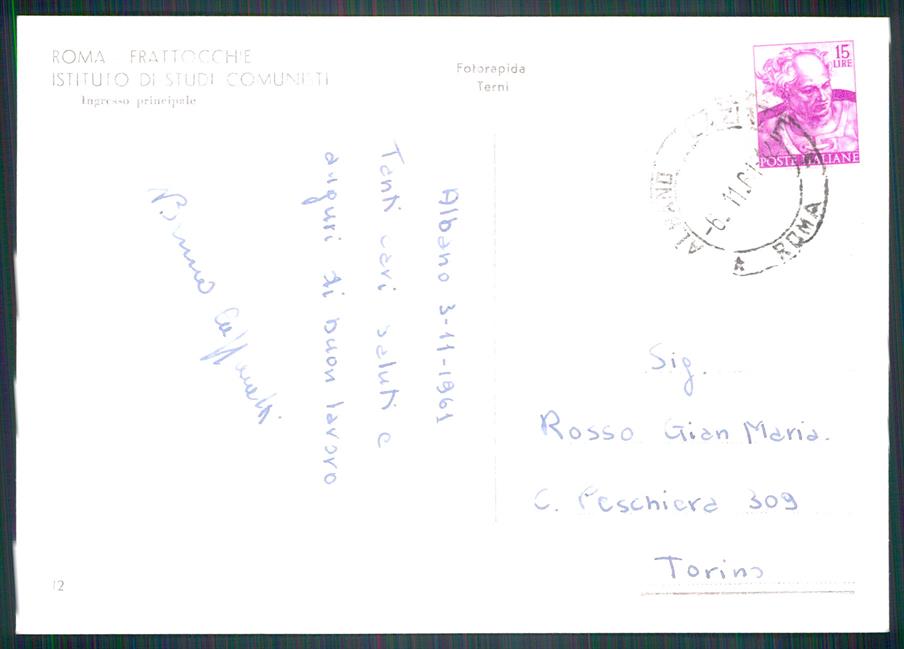 ROMA FRATTOCCHIE
ISTITUTO DI STUDI COMUNISTI
Ingresso principale
Fotorapida
Terni
15
LIRE
POSTE ITALIANE
ALBANO
-6.11.61
ROMA
Albano 3-11-1961
Tanti cari saluti e
auguri di buon lavoro
Sig.
Rosso Gian Maria.
C. Peschiera 309
Torino
12